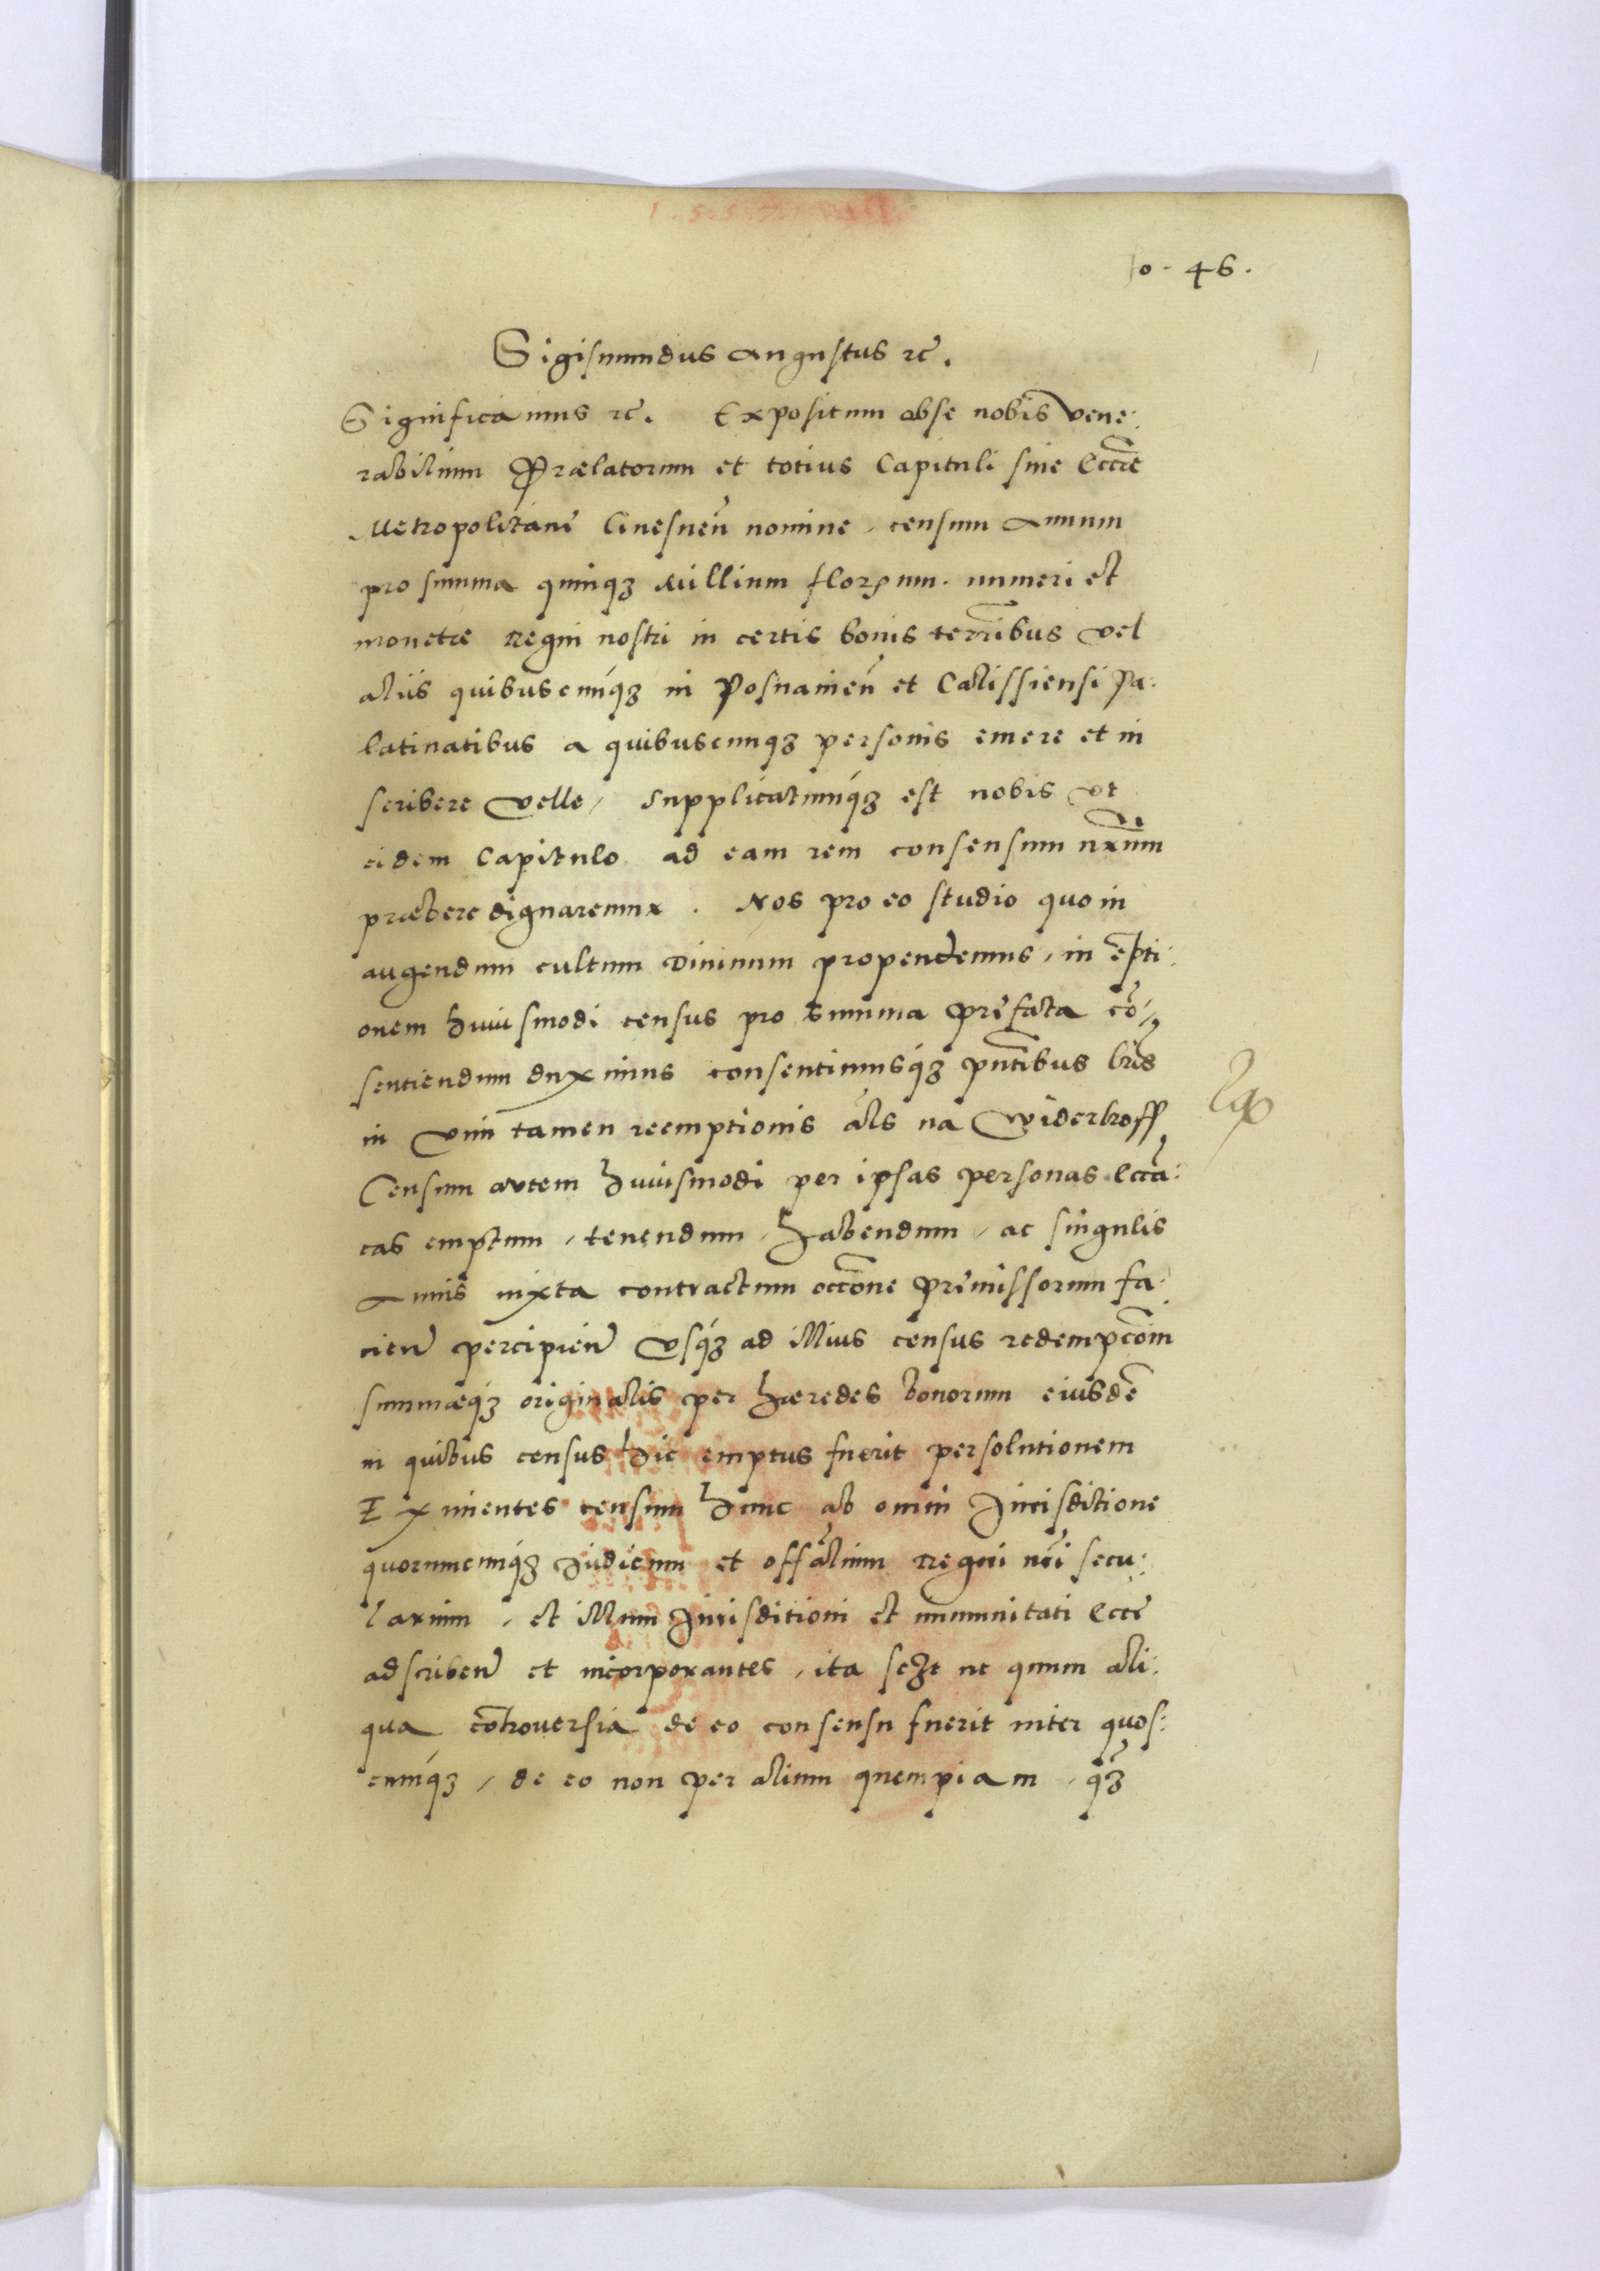 46.
Sigismundus Augustus etc.
Significamus etc. Expositum esse nobis Vene:
rabilium Prælatorum et totius Capituli sive Eccƚie
Metropolitane Gnesnen̄ nomine, censum Annum
pro summa quinqȝ Millium florenum. numeri et
monetæ Regni nostri in certis bonis terr̄ibus vel
aliis quibuscunqȝ in Posnanien̄ et Calissiensi Pa:
latinatibus a quibuscunqȝ personis emere et in
scribere velle, Supplicatumqȝ est nobis vt
eidem Capitulo ad eam rem consensum nr̄um
præbere dignaremur. Nos pro eo studio quo in
augendum cultum Divinum propendemus, in ēpti:
onem huiusmodi census pro summa prefata cō,
sentiendum duximus consentimusqȝ pn̄tibus lr̄is
in Vim tamen reemptionis als na Widerkoff
Censum autem huiusmodi per ipsas personas Ecctā:
cas emptum, tenendum, habendum, ac singulis
Annis iuxta contractum occōne premissorum fa:
cien̄ percipien̄ Vsqȝ ad illius census redempcōm
summæqȝ originalis per hæredes bonorum eiusdē
in quibus census hic emptus fuerit persolutionem
Eximentes censum hunc ab omni Jurisditione
quorumcunqȝ Judicum et offālium Regni nr̄i secu:
larium, et illum Jurisditioni et immunitati Eccƚie
adscriben̄ et incorporantes, ita scȝt ut quum ali:
qua cōtroversia de eo consensu fuerit inter quos:
cunqȝ, de eo non per alium quempiam, qȝ